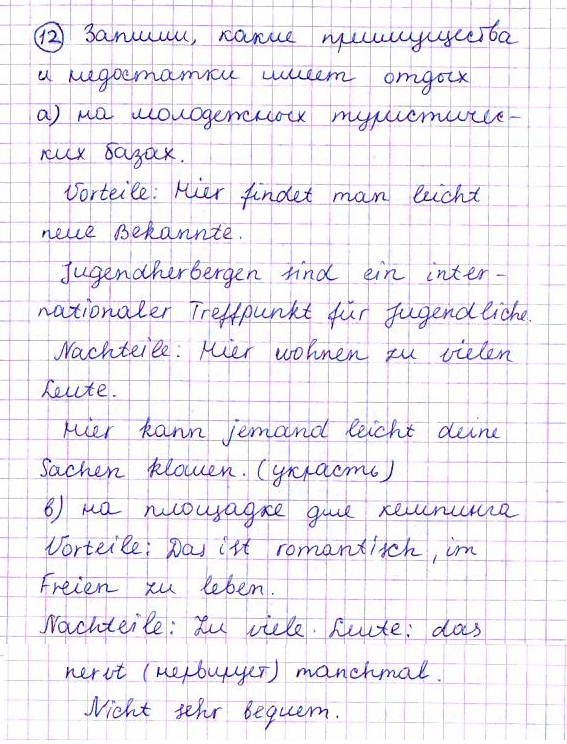 12 Запиши, какие преимущества
и недостатки имеет отдых
а) на молодежных туристичес-
ких базах.
Vorteile: Hier findet man leicht
neue Bekannte.
Jugendherbergen sind ein inter-
nationaler Treffpunkt für Jugendliche.
Nachteile: Hier wohnen zu vielen
Leute.
Hier kann jemand leicht deine
Sachen klauen. (украсть)
в) на площадке для кемпинга
Vorteile: Das ist romantisch, im
Freien zu leben.
Nachteile: Zu viele Leute: das
nervt (нервирует) manchmal.
Nicht sehr bequem.